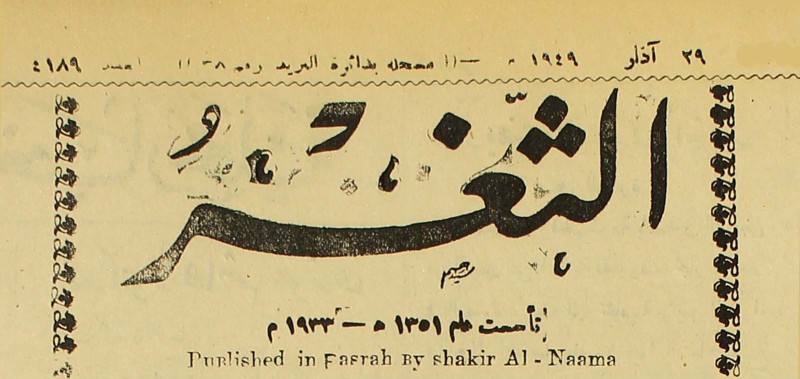 ٢٩ آذار ١٩٤٩ م — المسجله بدائرة البريد رقم ٣٨ العدد ٤١٨٩
الثغر
تأسست عام ١٣٥١ ه — ١٩٣٣ م
Published in Basrah By shakir Al - Naama